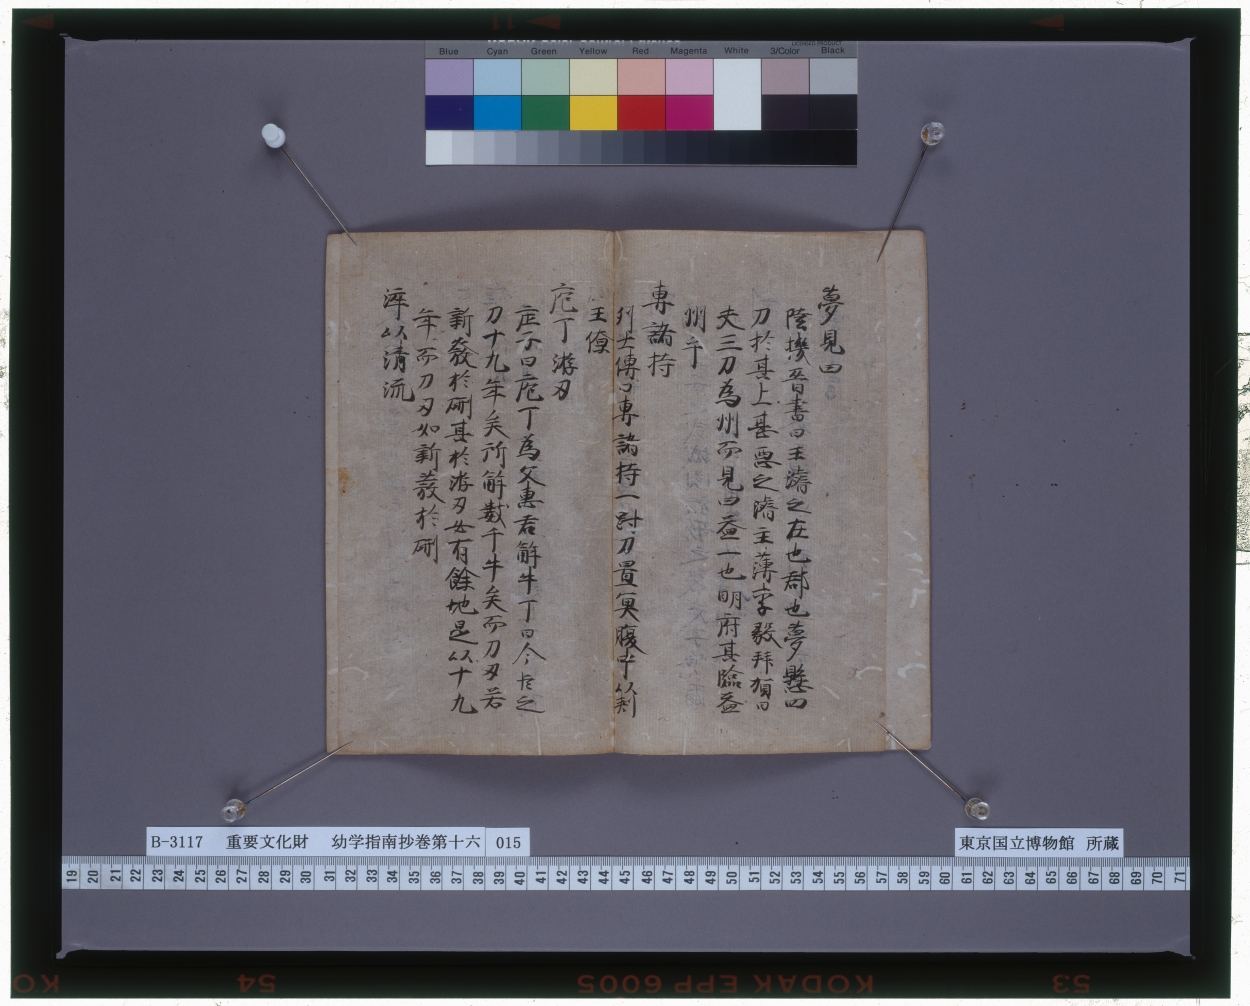 Blue Cyan Green Yellow Red Magenta White 3/Color Black
夢見四
陸機晉書曰王濬之在也郡也夢懸四
刀於其上甚惡之濬主薄李毅拜賀曰
夫三刀為州而見四益一也明府其臨益
州乎
専諸持
列士傳曰専諸持一尉刀置魚腹中以刺
王僚
庖丁游刃
庄子曰庖丁為文惠君解牛丁曰今臣之
刀十九年矣所解数千牛矣而刀刃若
新發於硎其於游刃必有餘地是以十九
年而刀刃如新發於硎
淬以清流
B-3117 重要文化財 幼学指南抄巻第十六 015
東京国立博物館 所蔵
19 20 21 22 23 24 25 26 27 28 29 30 31 32 33 34 35 36 37 38 39 40 41 42 43 44 45 46 47 48 49 50 51 52 53 54 55 56 57 58 59 60 61 62 63 64 65 66 67 68 69 70 71
54 KODAK EPP 6005 53